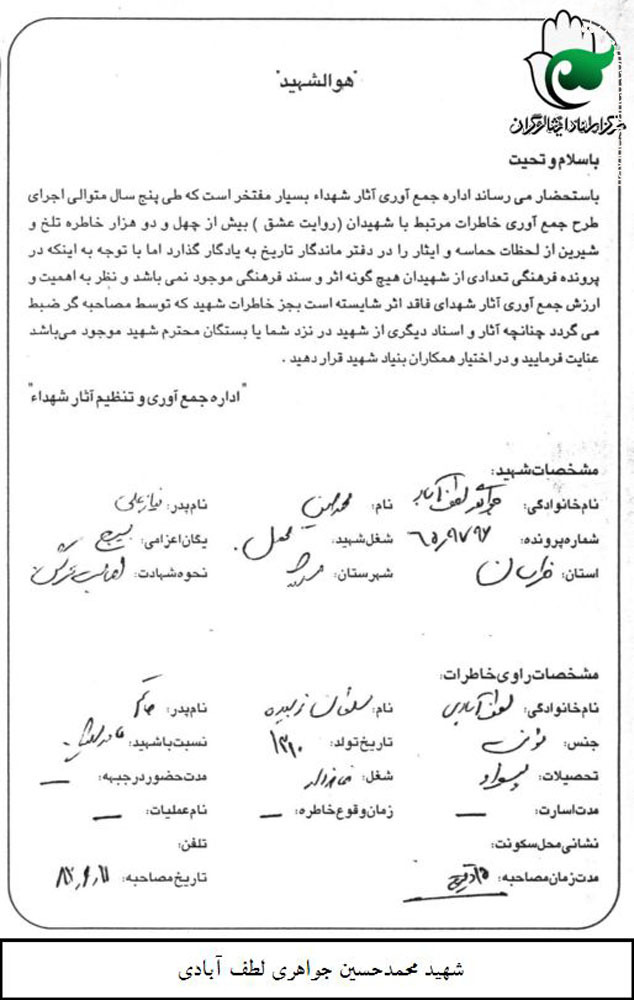 "هوالشهید"
مرکز اسناد ایثارگران
باسلام و تحیت
باستحضار می رساند اداره جمع آوری آثار شهداء بسیار مفتخر است که طی پنج سال متوالی اجرای
طرح جمع آوری خاطرات مرتبط با شهیدان (روایت عشق ) بیش از چهل و دو هزار خاطره تلخ و
شیرین از لحظات حماسه و ایثار را در دفتر ماندگار تاریخ به یادگار گذارد اما با توجه به اینکه در
پرونده فرهنگی تعدادی از شهیدان هیچ گونه اثر و سند فرهنگی موجود نمی باشد و نظر به اهمیت و
ارزش جمع آوری آثار شهدای فاقد اثر شایسته است بجز خاطرات شهید که توسط مصاحبه گر ضبط
می گردد چنانچه آثار و اسناد دیگری از شهید در نزد شما یا بستگان محترم شهید موجود می‌باشد
عنایت فرمایید و در اختیار همکاران بنیاد شهید قرار دهید .
"اداره جمع آوری و تنظیم آثار شهداء"
مشخصات شهید:
نام خانوادگی: جواهری لطف آبادی نام: محمدحسین نام پدر:
شماره پرونده: شغل شهید: محصل یگان اعزامی: بسیج
استان: خراسان شهرستان: نحوه شهادت: اصابت ترکش
مشخصات راوی خاطرات:
نام خانوادگی: لطف آبادی نام: نام پدر:
جنس: مؤنث تاریخ تولد: ۱۳۱۰ نسبت باشهید:
تحصیلات: بیسواد شغل: خانه‌دار مدت حضور در جبهه: —
مدت اسارت: — زمان وقوع خاطره: — نام عملیات: —
نشانی محل سکونت: تلفن:
مدت زمان مصاحبه: تاریخ مصاحبه:
شهید محمدحسین جواهری لطف آبادی